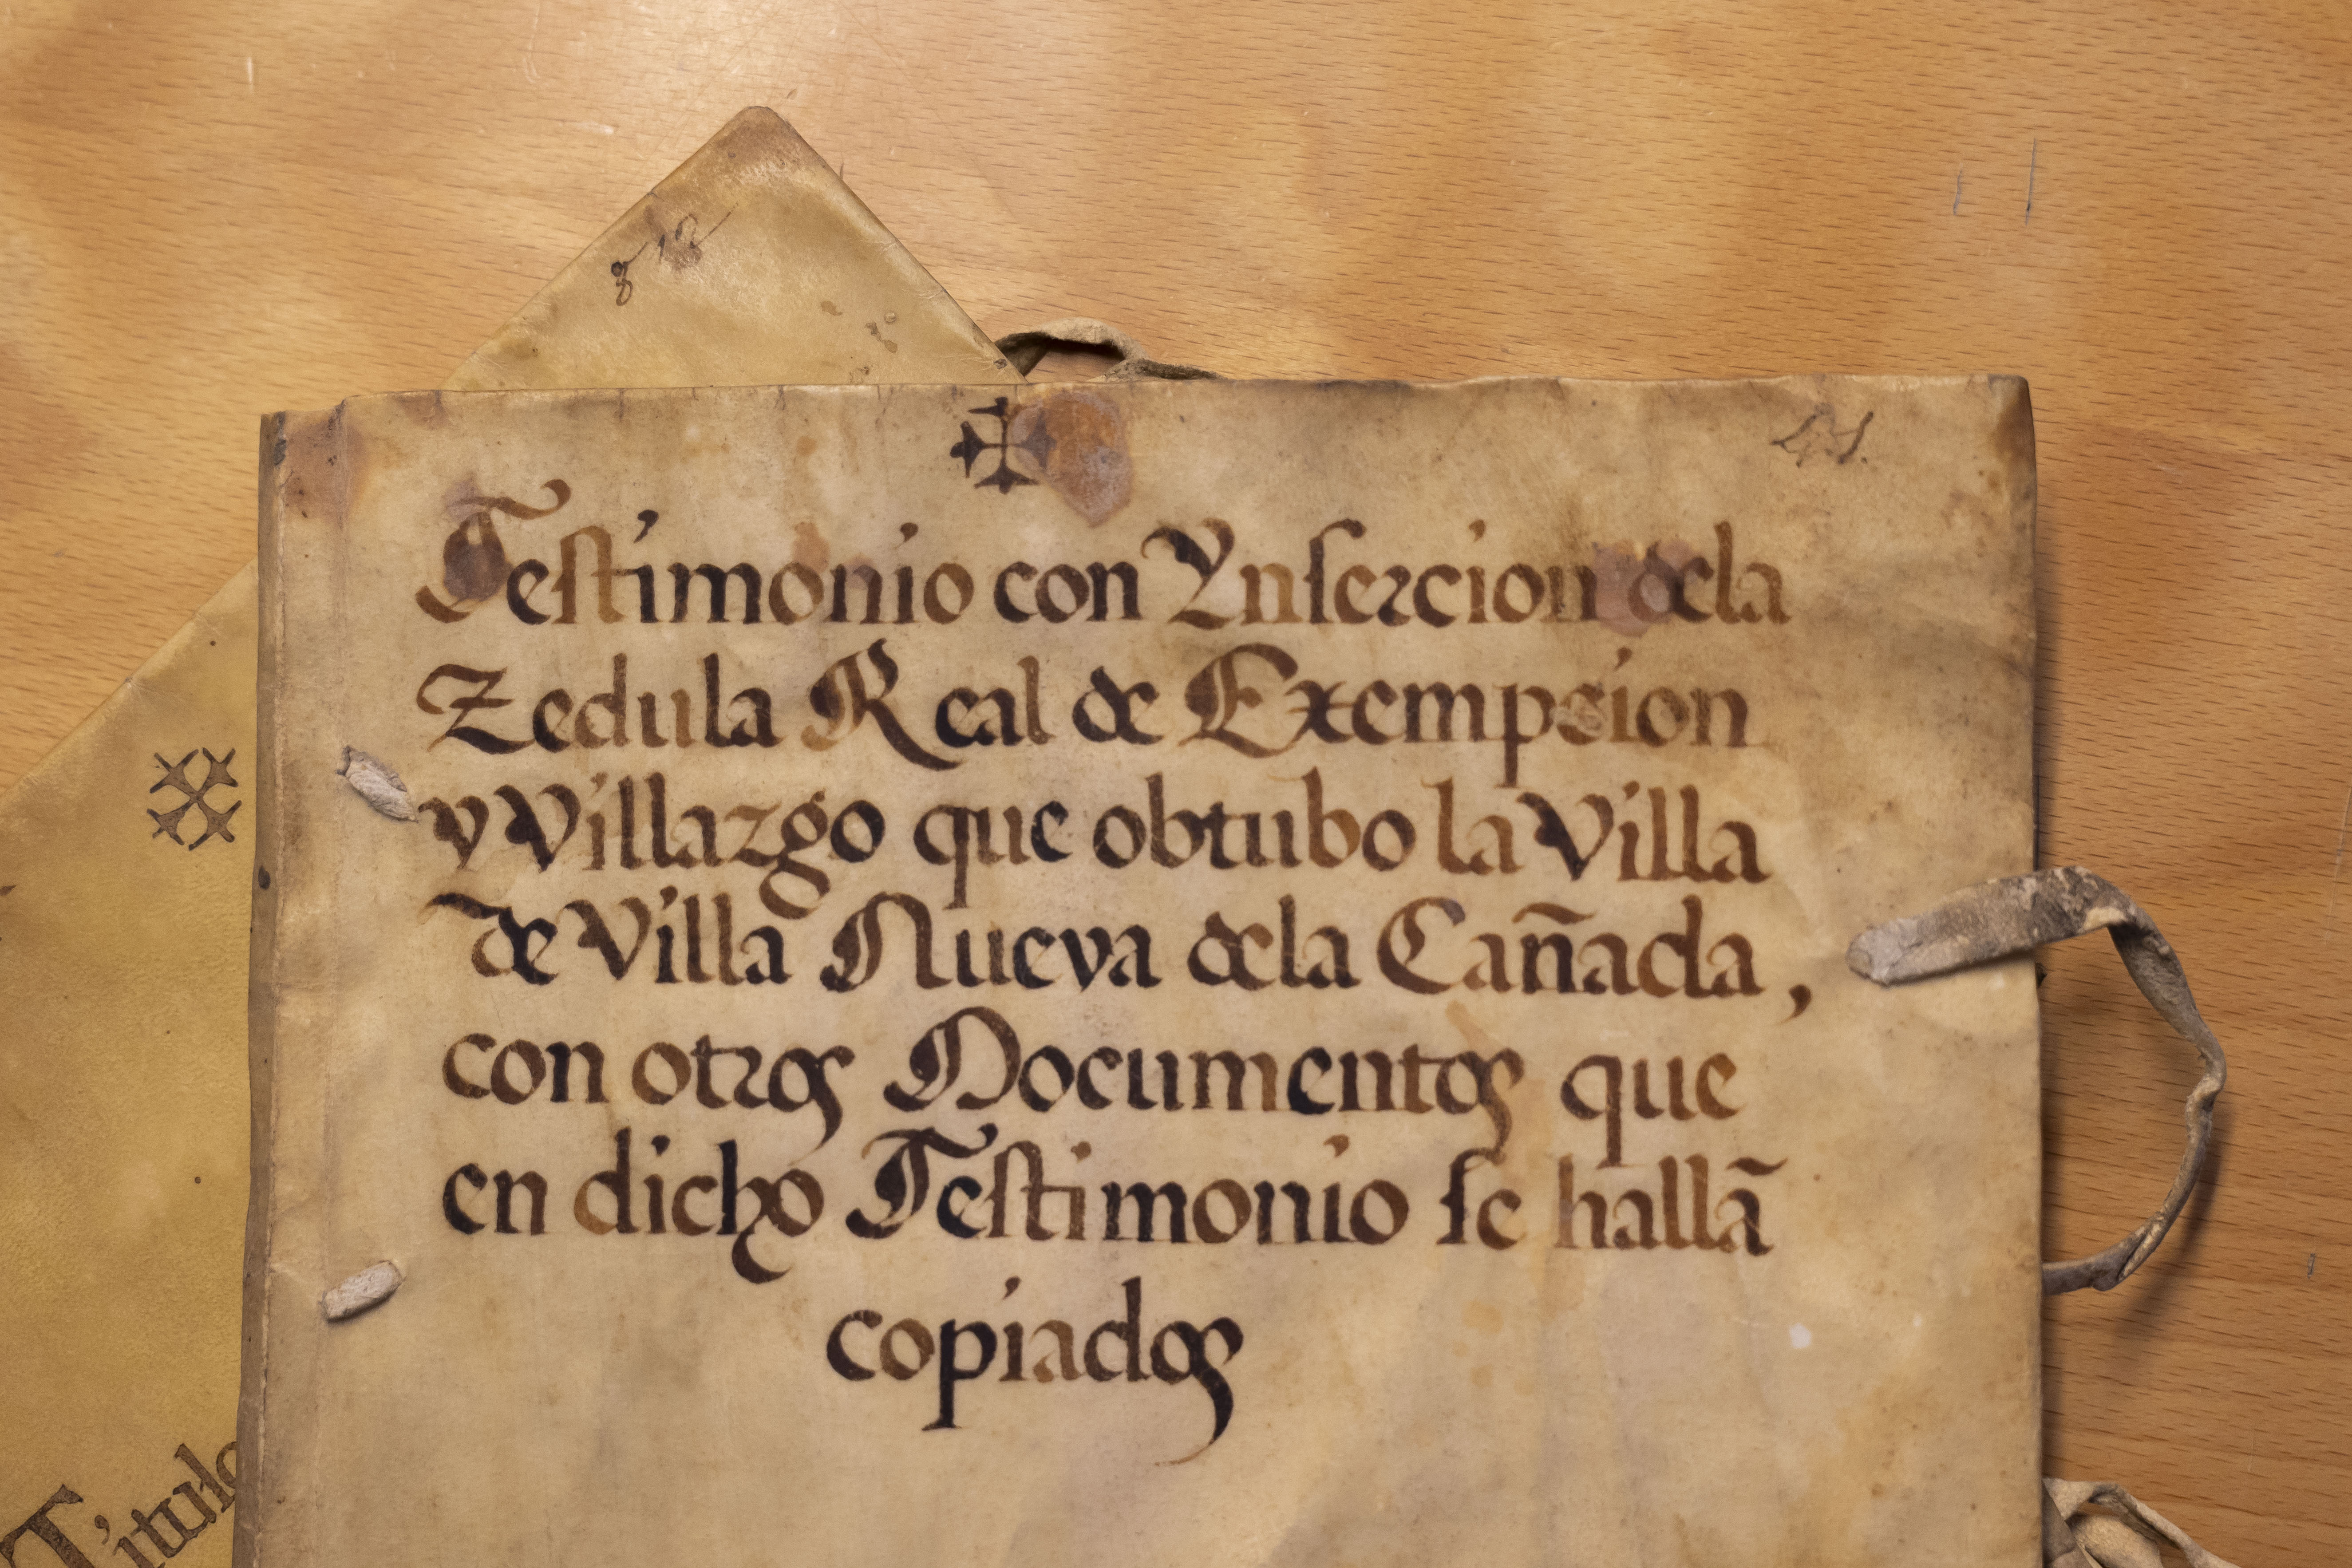 Testimonio con Ynsercion dela
Zedula Real de Exempcion
y Villazgo que obtubo la Villa
de Villa Nueva dela Cañada,
con otros Documentos que
en dicho Testimonio se hallā
copiados
Titulo